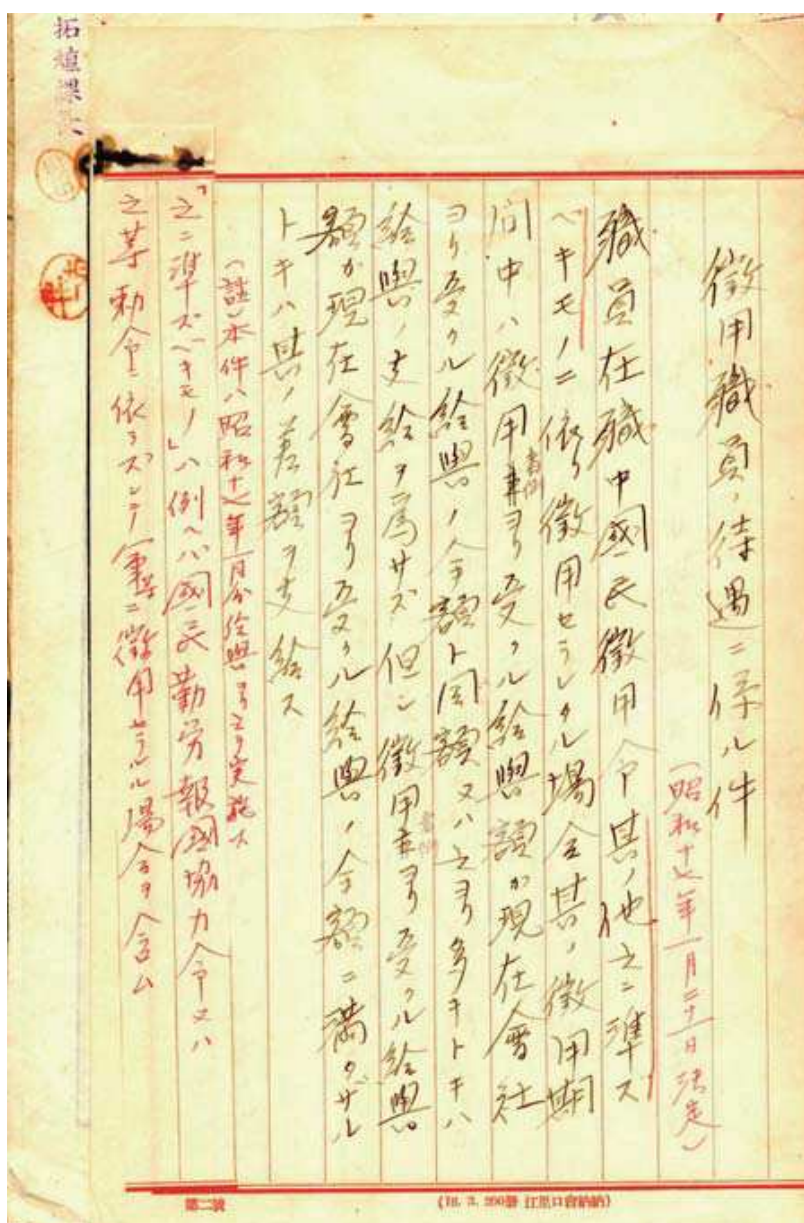 徴用職員ノ待遇ニ係ル件
(昭和十七年一月二十一日決定)
職員在職中國民徴用令其ノ他之ニ準ス
ベキモノニ依リ徴用セラレタル場合其ノ徴用期
間中ハ徴用ヨリ受クル給與額カ現在會社
ヨリ受クル給與ノ全額ト同額又ハ之ヨリ多キトキハ
給與ノ支給ヲ為サズ但シ徴用ヨリ受クル給與
額カ現在會社ヨリ受クル給與ノ全額ニ満タザル
トキハ其ノ差額ヲ支給ス
(註)本件ハ昭和十七年一月分給與ヨリ之ヲ実施ス
「之ニ準ズベキモノ」ハ例ヘバ國民勤労報國協力令又ハ
之等勅令ニ依ラズシテ軍等ニ徴用セラルル場合ヲ含ム
拓殖課
第二號
江里口會納納)